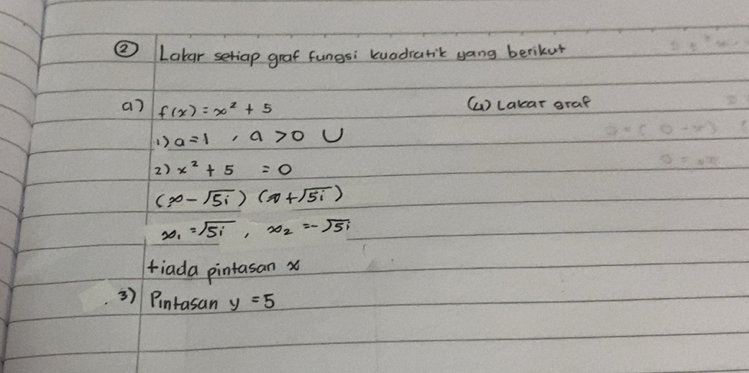 ② Lakar setiap graf fungsi kuadratik yang berikut
a) f(x) = x² + 5
1) a = 1 , a > 0 ∪
2) x² + 5 = 0
(x - √5i) (x + √5i)
x₁ = √5i , x₂ = -√5i
tiada pintasan x
3) Pintasan y = 5
(4) Lakar graf